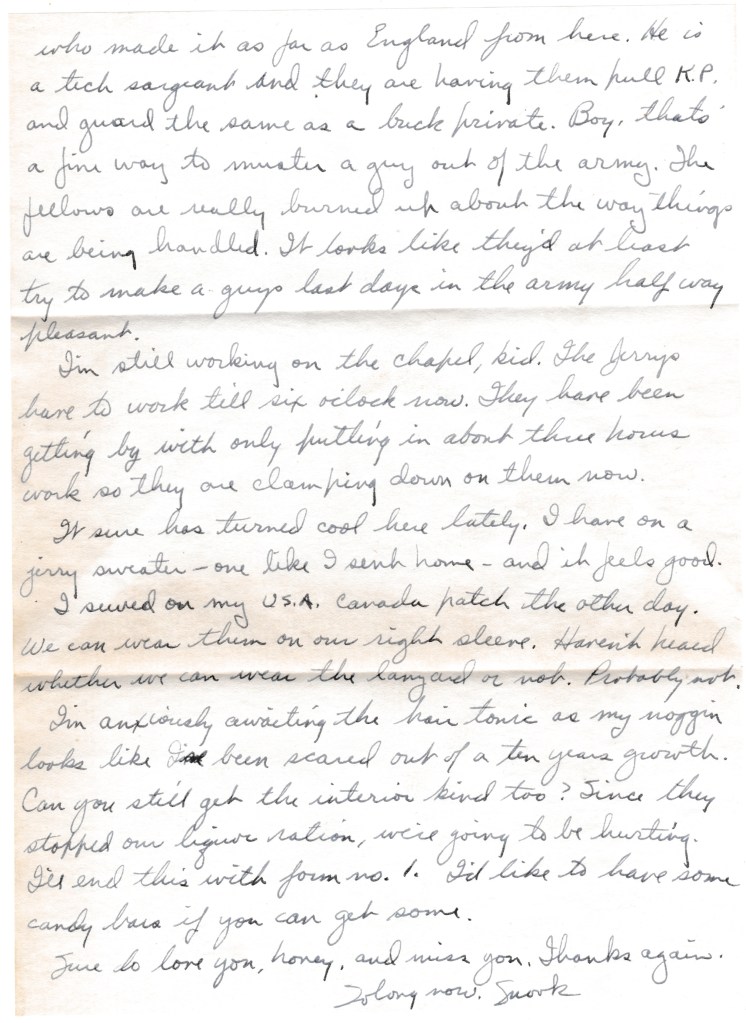 who made it as far as England from here. He is
a tech sargeant and they are having them pull K.P.
and guard the same as a buck private. Boy, thats'
a fine way to muster a guy out of the army. The
fellows are really burned up about the way things
are being handled. It looks like they'd at least
try to make a guys last days in the army half way
pleasant.
I'm still working on the chapel, kid. The Jerrys
have to work till six o'clock now. They have been
getting by with only putting in about three hours
work so they are clamping down on them now.
It sure has turned cool here lately. I have on a
jerry sweater - one like I sent home - and it feels good.
I sewed on my U.S.A. Canada patch the other day.
We can wear them on our right sleeve. Haven't heard
whether we can wear the lanyard or not. Probably not.
I'm anxiously awaiting the hair tonic as my noggin
looks like I've been scared out of a ten years growth.
Can you still get the interior kind too? Since they
stopped our liquor ration, we're going to be hurting.
I'll end this with form no. 1. I'd like to have some
candy bars if you can get some.
Sure do love you, honey, and miss you. Thanks again.
Solong now. Snork